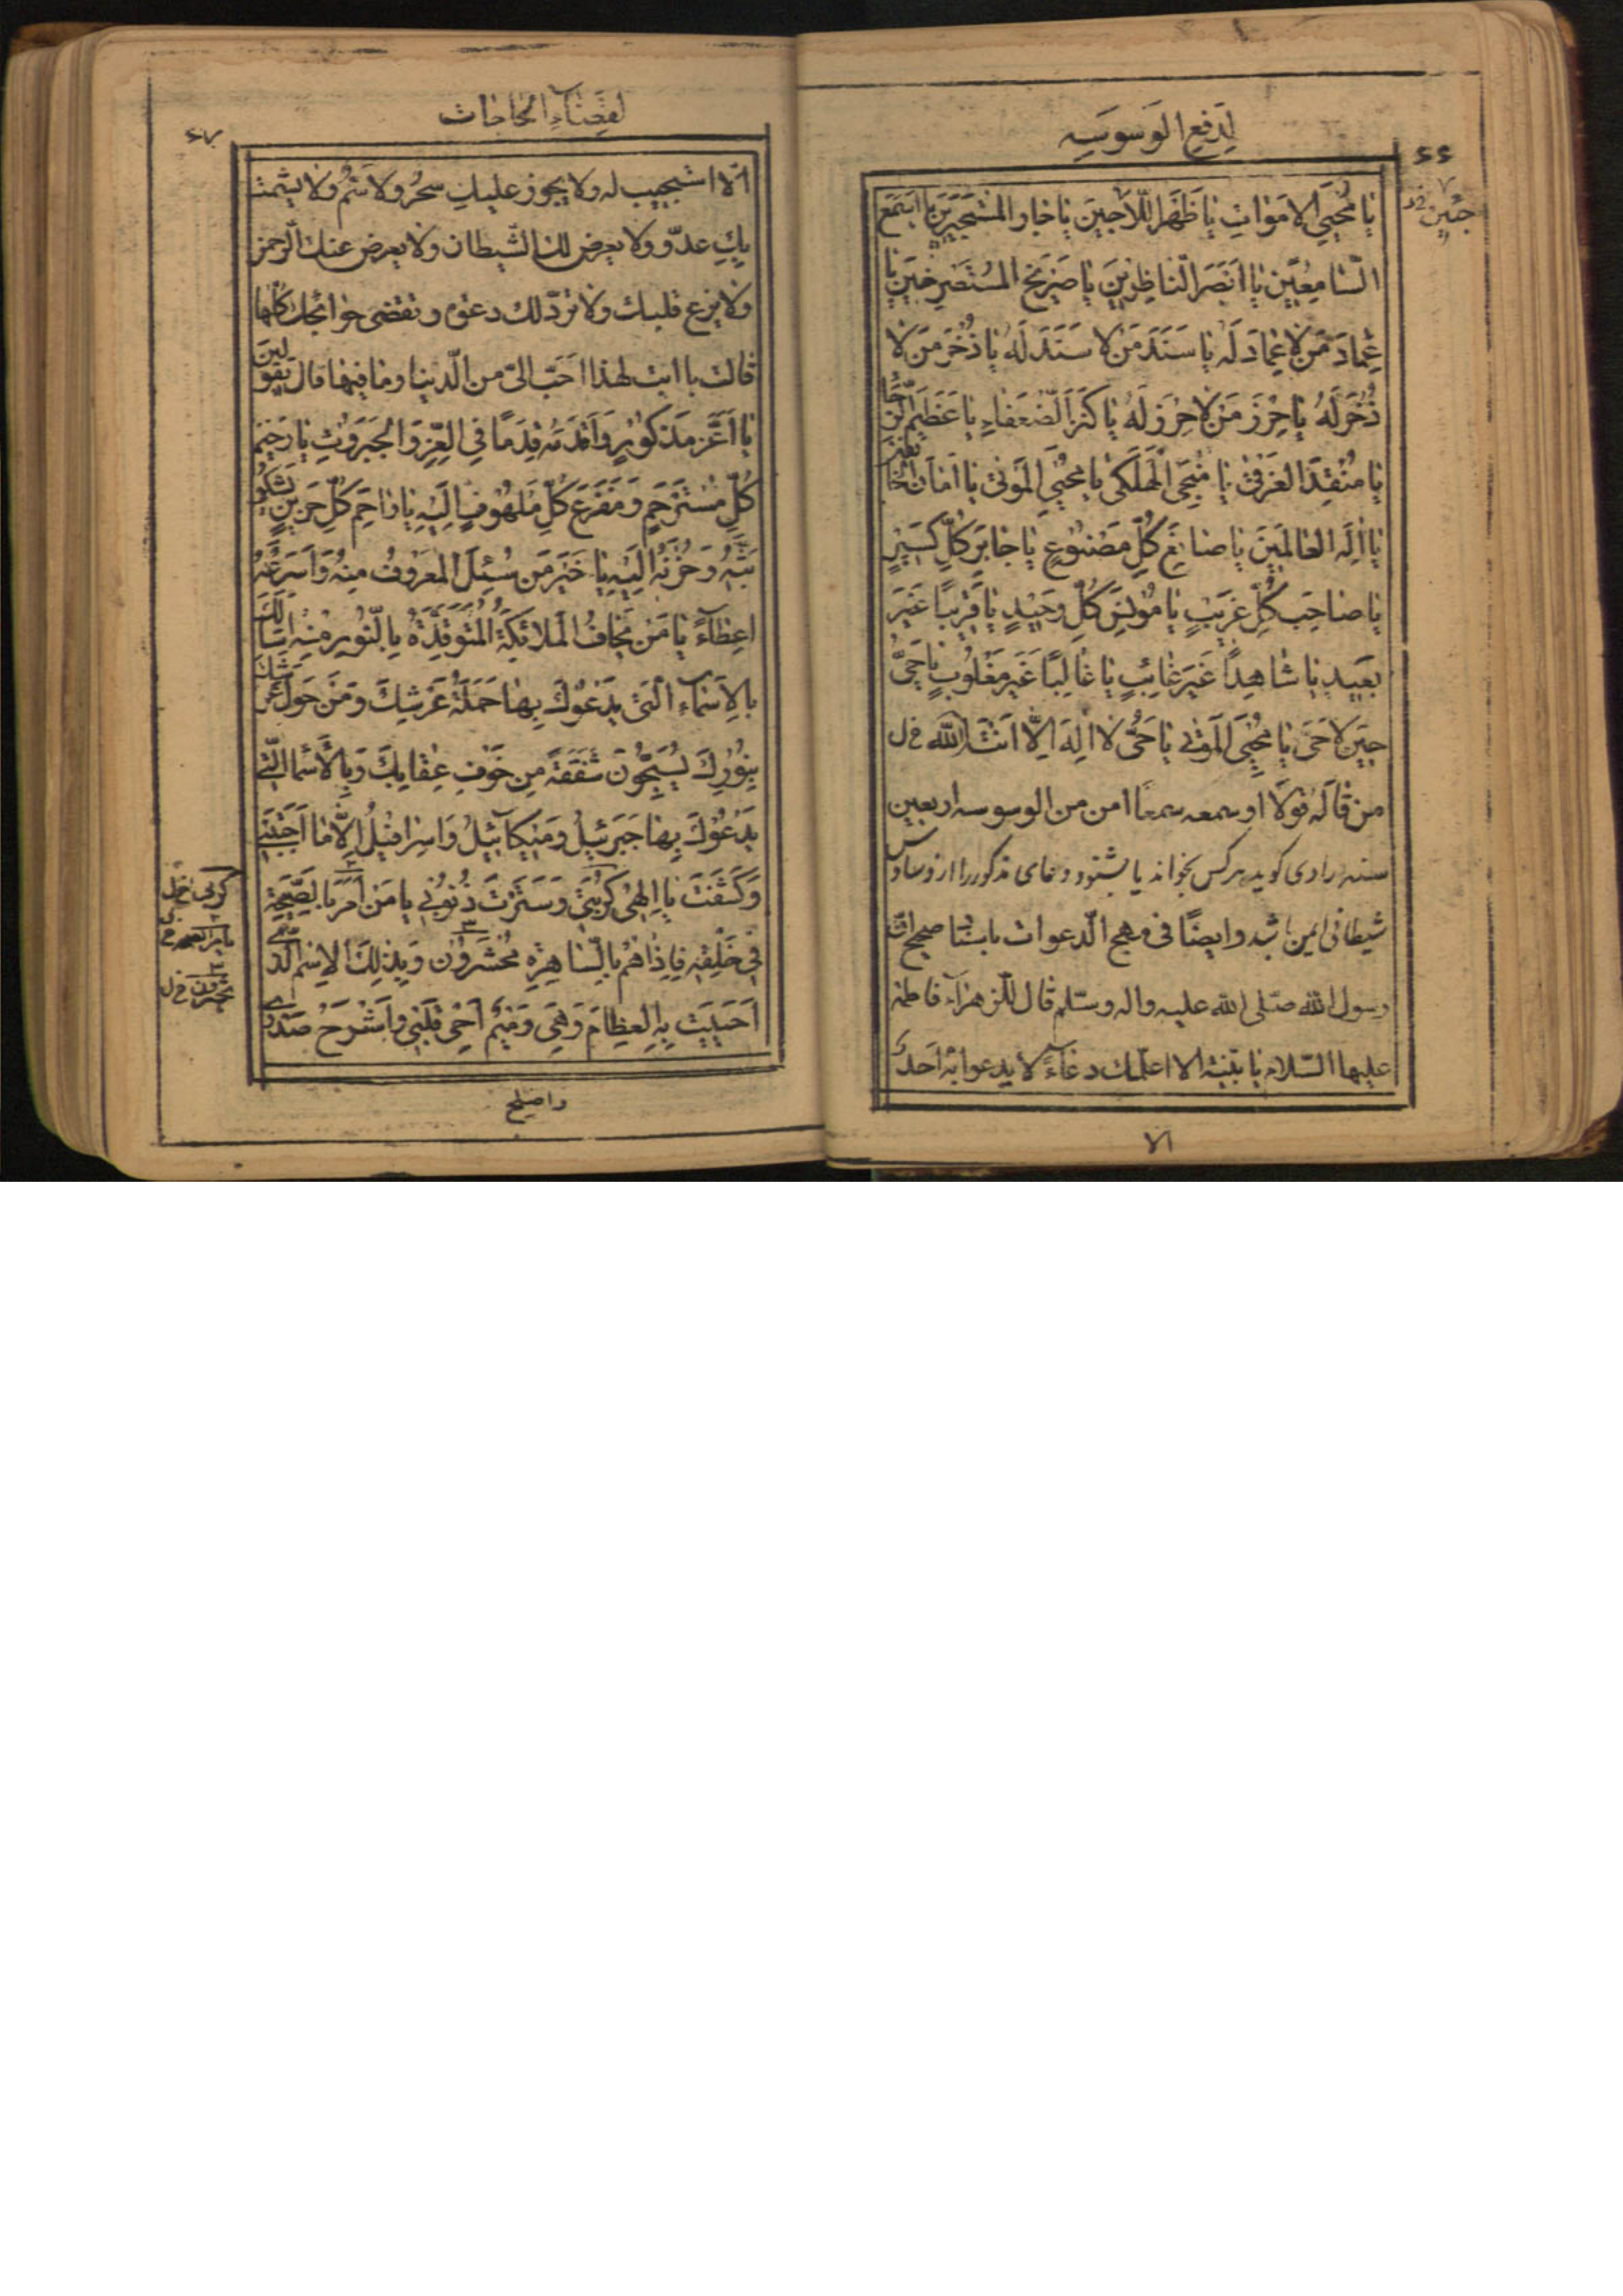 لِدَفعِ الوَسوَسَه
۶۶
يا مُحْيِيَ الاَمْواتِ يا ظَهْرَ اللّاجِينَ يا جار المُسْتَجيرينَ يا اَسْمَعَ
السّامِعينَ يا اَبْصَرَ النّاظِرينَ يا صَريخَ المُسْتَصْرِخينَ يا
عِمادَ مَنْ لا عِمادَ لَهُ يا سَنَدَ مَنْ لا سَنَدَ لَهُ يا ذُخْرَ مَنْ لا
ذُخْرَ لَهُ يا حِرْزَ مَنْ لا حِرْزَ لَهُ يا كَنْزَ الضُّعَفاءِ يا عَظيمَ الرَّجا
يا مُنْقِذَ الغَرْقى يا مُنْجِيَ الهَلْكى يا مُحْيِيَ المَوْتى يا اَمانَ الخائفين
يا اِلهَ العالَمينَ يا صانِعَ كُلِّ مَصْنُوعٍ يا جابِرَ كُلِّ كَسيرٍ
يا صاحِبَ كُلِّ غَريبٍ يا مُونِسَ كُلِّ وَحيدٍ يا قَريبًا غَيْرَ
بَعيدٍ يا شاهِدًا غَيْرَ غائِبٍ يا غالِبًا غَيْرَ مَغْلُوبٍ يا حَيُّ
حينَ لا حَيَّ يا مُحْيِيَ المَوْتى يا حَيُّ لا اِلهَ اِلّا اَنْتَ الله خ ل
من قاله قولًا او سمعه سمعًا امن من الوسوسه اربعين
سنه راوى كويد هركس بخواند يا بشنود دعاى مذكور را از وساوس
شيطانى ايمن باشد وايضًا فى مهج الدعوات باسناد صحيح ان
رسول الله صلّى الله عليه واله وسلّم قال للزهراء فاطمه
عليها السّلام يا بنيّه الا اعلّمك دعاءً لا يدعوا به احد
الا
لقضاءِ الحاجات
۶۷
الّا استجيب له ولا يجوز عليكِ سحرٌ ولا سمٌّ ولا يشمت
بكِ عدوّ ولا يعرض لك الشّيطان ولا يعرض عنك الرّحمن
ولا يزغ قلبك ولا تردّ لك دعوه وتقضى حوائجك كلّها
قالت يا ابت لهذا احَبّ الىّ من الدّنيا وما فيها قال تقولين
يا اَعَزَّ مَذْكُورٍ وَاَقْدَمَهُ قِدَمًا فِي العِزِّ وَالجَبَرُوتِ يا رَحيمَ
كُلِّ مُسْتَرْحِمٍ وَمَفْزَعَ كُلِّ مَلْهُوفٍ اِلَيْهِ يا راحِمَ كُلِّ حَزينٍ يَشْكُو
بَثَّهُ وَحُزْنَهُ اِلَيْهِ يا خَيْرَ مَنْ سُئِلَ المَعْرُوفُ مِنْهُ وَاَسْرَعَهُ
اِعْطاءً يا مَنْ يَخافُ المَلائِكَةُ المُتَوَقِّدَةُ بِالنُّورِ مِنْهُ اَسْئَلُكَ
بِالاَسْماءِ الَّتي يَدْعُوكَ بِها حَمَلَةُ عَرْشِكَ وَمَنْ حَوْلَ عَرْشِكَ
بِنُورِكَ يُسَبِّحُونَ شَفَقَةً مِنْ خَوْفِ عِقابِكَ وَبِالاَسْماءِ الَّتي
يَدْعُوكَ بِها جَبْرَئيلُ وَميكائيلُ وَاِسْرافيلُ اِلّا ما اَجَبْتَني
وَكَشَفْتَ يا اِلهي كُرْبَتي وَسَتَرْتَ ذُنُوبي يا مَنْ اَمَرَ بِالصَّيْحَةِ
في خَلْقِهِ فَاِذا هُمْ بِالسّاهِرَةِ مُحْشَرُونَ وَبِذلِكَ الاِسْمِ الَّذي
اَحْيَيْتَ بِهِ العِظامَ وَهِيَ رَميمٌ اَحْيِ قَلْبي وَاشْرَحْ صَدْري
واصلح